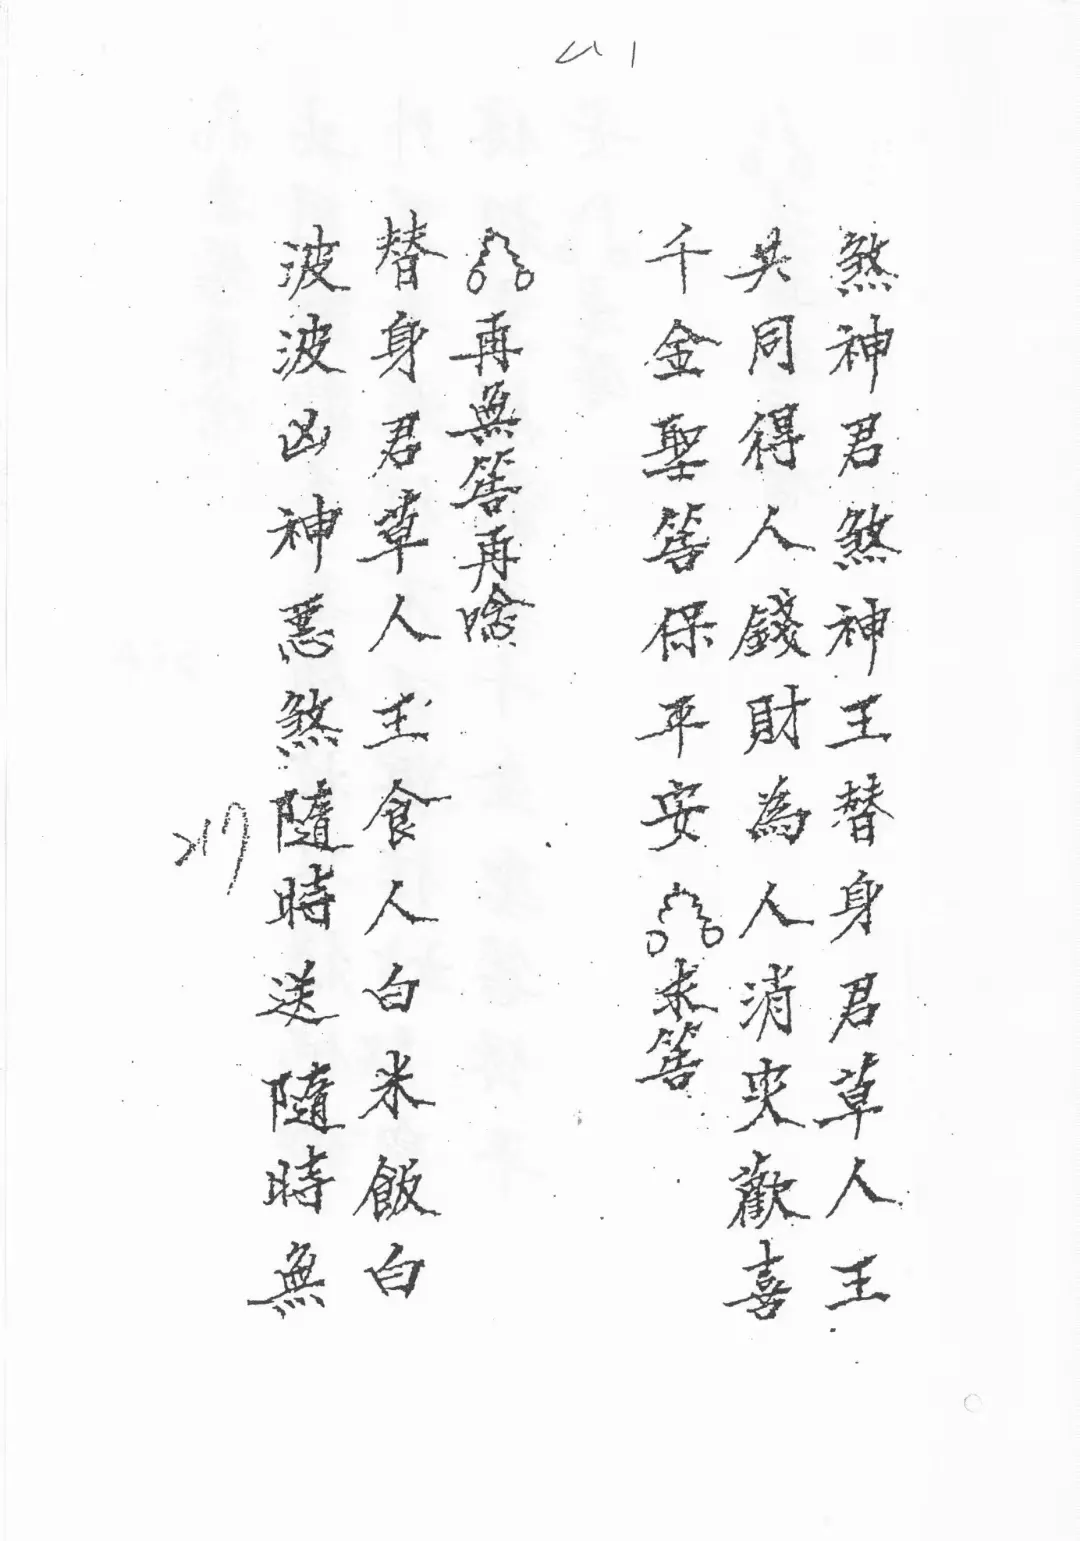 煞神君煞神王替身君草人王
共同得人錢財為人消灾歡喜
千金聖筶保平安
求筶
再無筶再唸
替身君草人王食人白米飯白
波波凶神惡煞隨時送隨時無